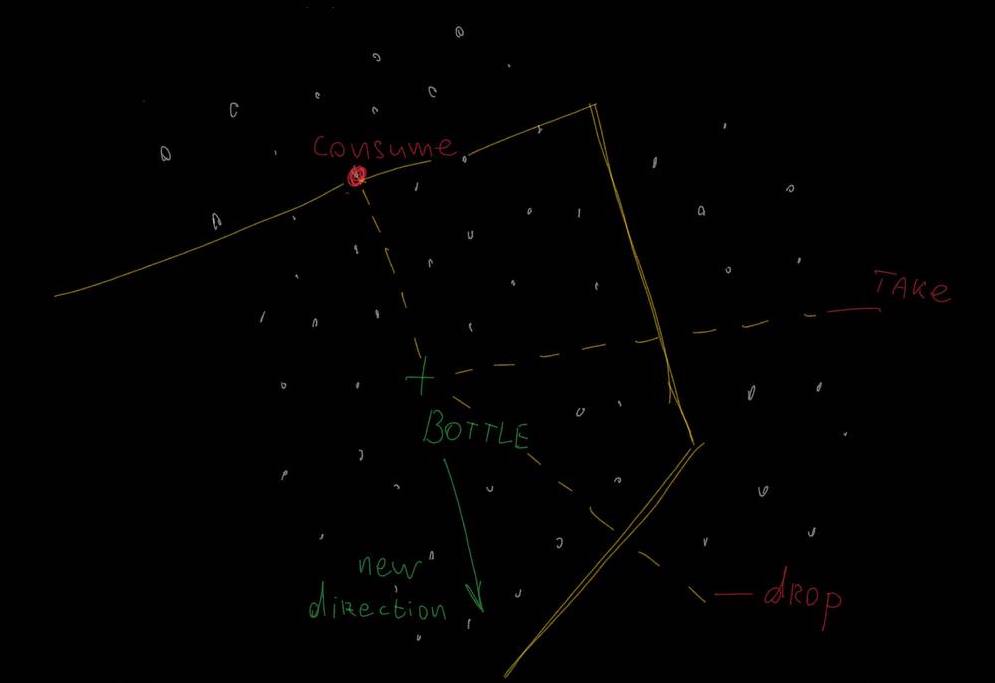 Consume
TAKe
BOTTLE
new
direction
drop